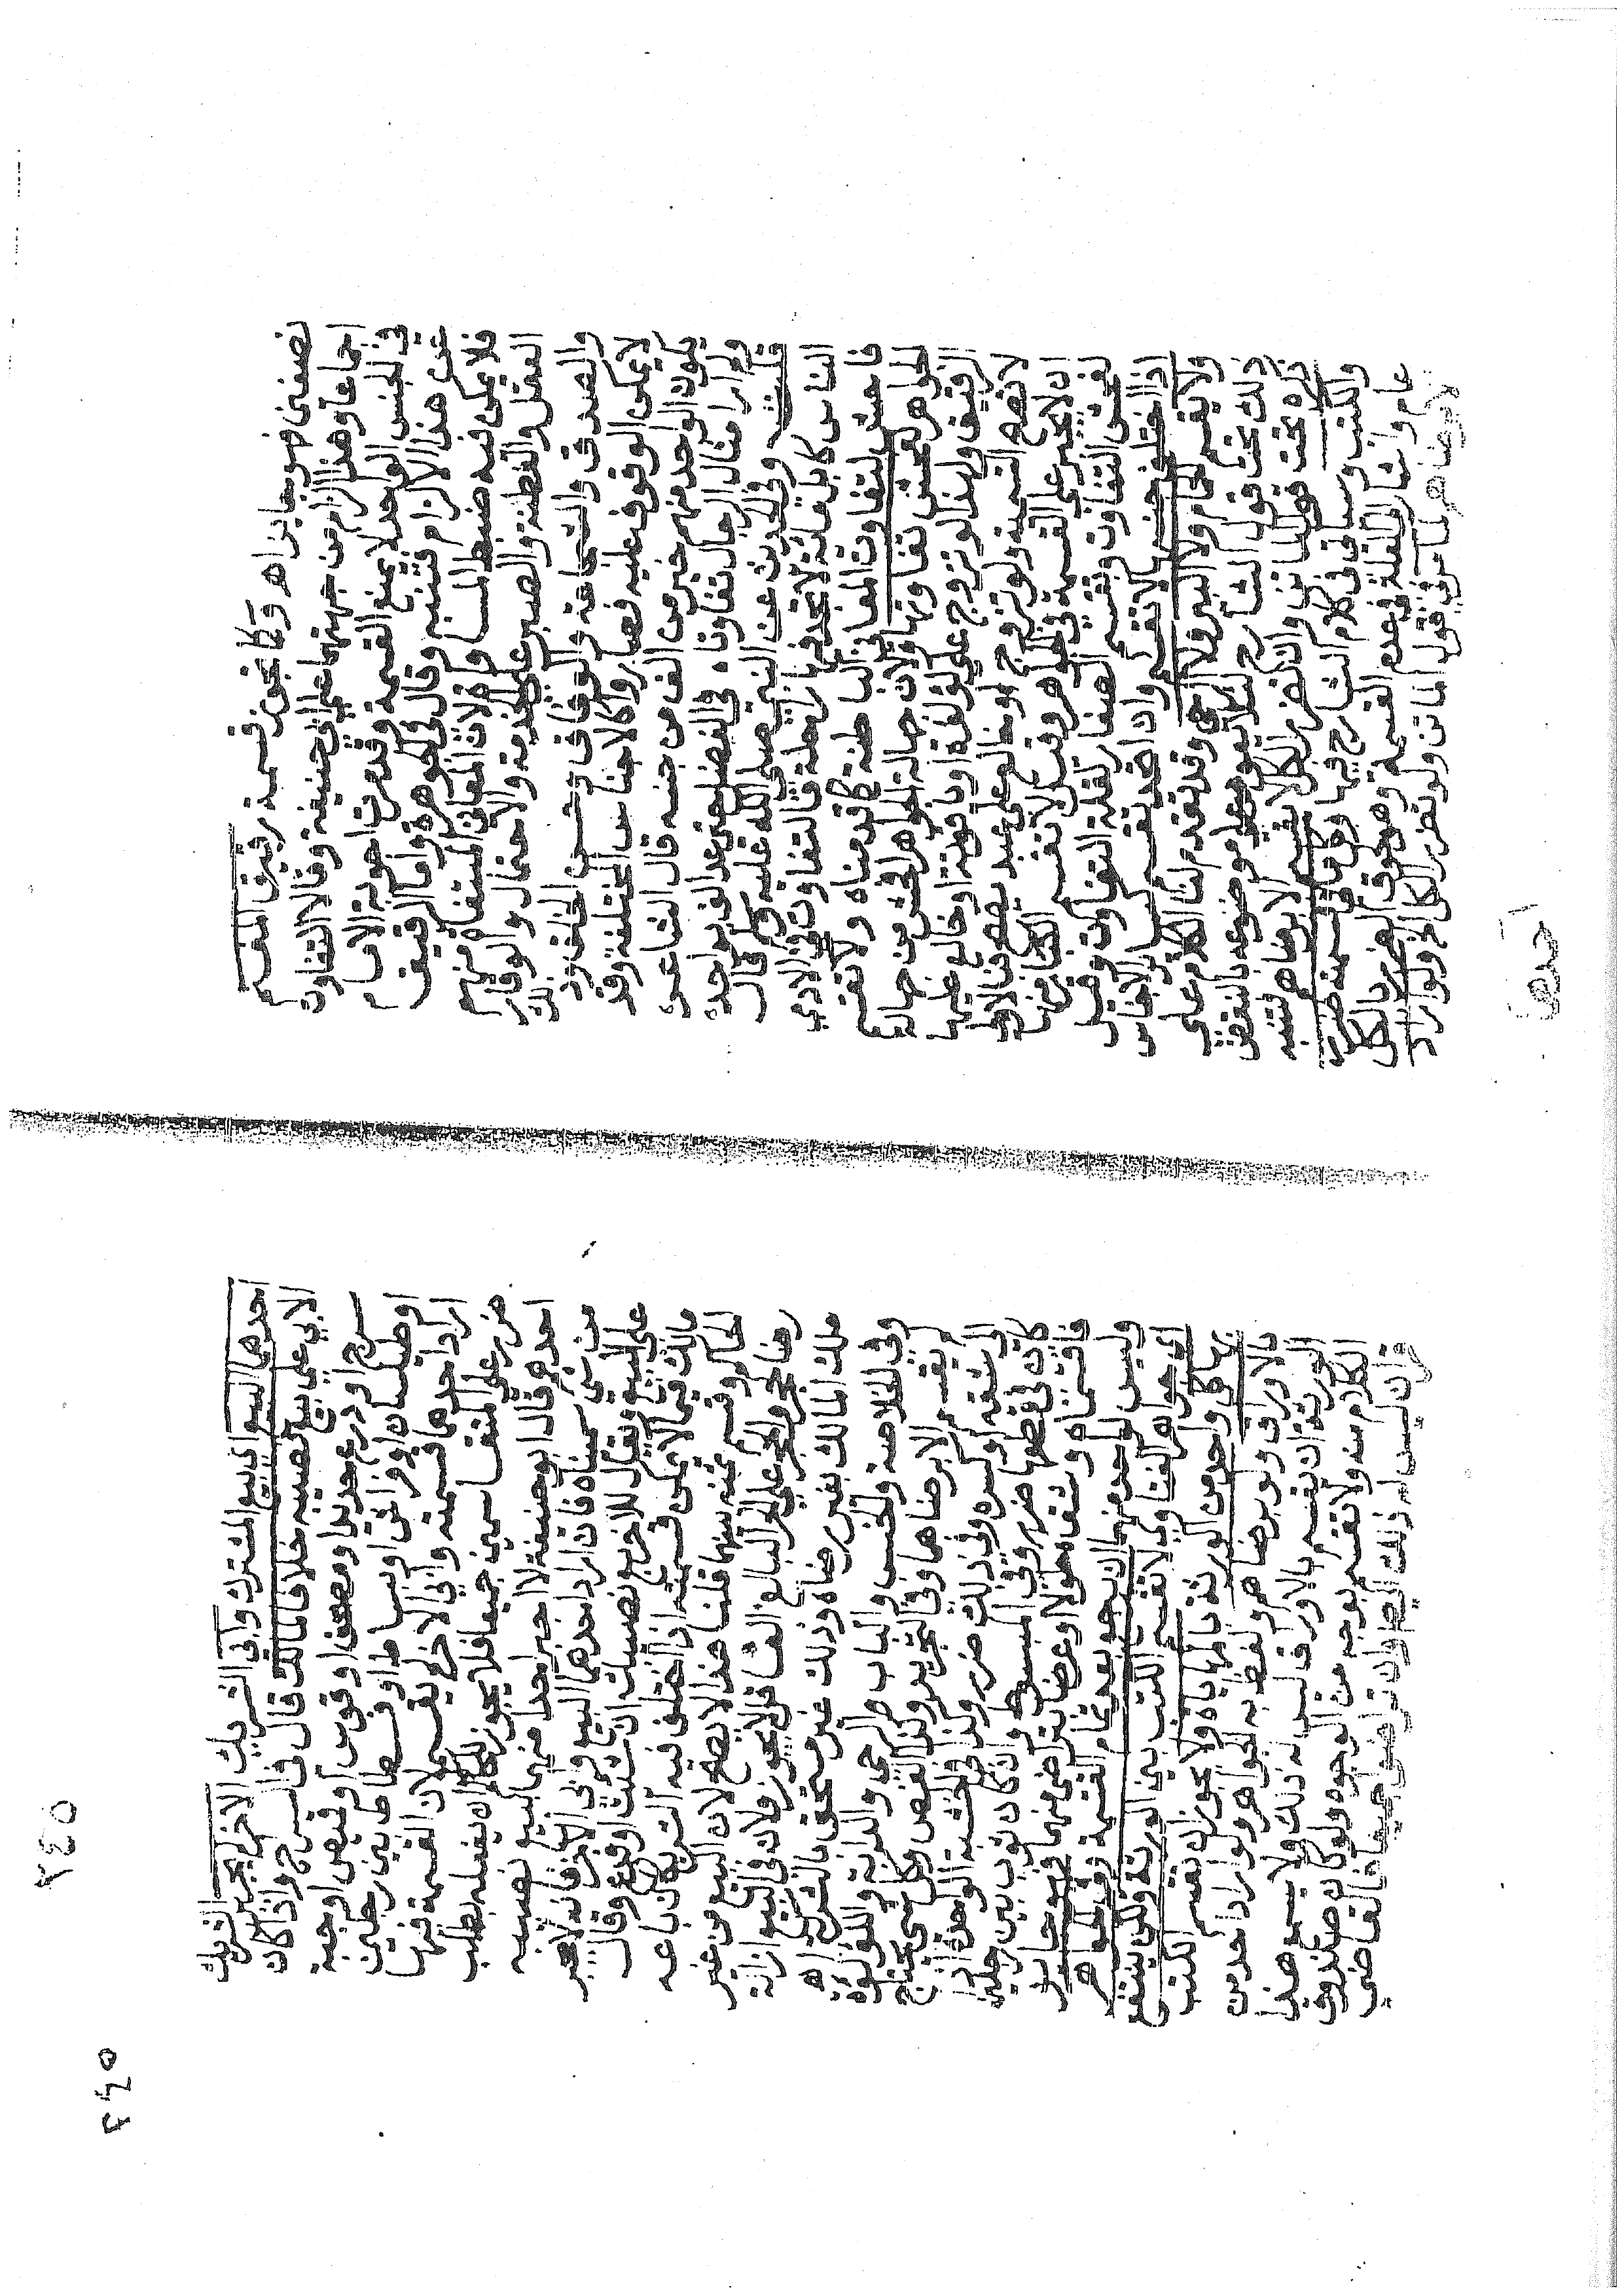 نصفين فهو مما بزاهر وكما تجوز قسمة رقيق المغنم
اجماعا وهذا الزام من جهتهما علي ابي حنيفة وقالا التفاوت
في الجنس الواحد لا يمنع القسمة وقد مرت اجوبة الامام
عن هذا الالزام فتنبه وقال في الجوهرة واما الرقيق
فلا يمكن فيه ضبط المساواة لان المعاني المبتغاة منهم
العقل والفطنة والصبر علي الخدمة والاحتمال والوقار
والصدق والشجاعة والوفاق وحسن الخلق وذلك
لا يمكن الوقوف عليه فصاروا كالاجناس المختلفة وقد
يكون الواحد منهم خير من الف من جنسه قال الشاعر
ولم ار امثال الرجال تفاوتا في الفضل حتي عد الف بواحد
قلت وفي الحديث عن النبي صلي الله عليه وسلم قال
الناس كابل مائة لا تجد فيها راحلة فالتفاوت في الادمي
فاحش لتفاوت المعاني الباطنة كما قدمناه ولا تقسم
الجواهر لفحش تفاوتها ولان جهالة الجواهر افحش من جهالة
الرقيق ولهذا لو تزوج علي لؤلؤة او ياقوتة او خالع عليها
لا تصح التسمية ولو تزوج او خالع علي عبد يصح فالاولي
ان لا يجبر علي القسمة في الجواهر وقيل لا تقسم الكبار منها
لفحش التفاوت وتقسم الصغار لقلة التفاوت وقيل
اذا اختلف جنسها لا تقسم وان اتحد تقسم كسائر الاجناس
ولا يقسم الحمام ولا البئر ولا الرحي وقد تقدم لنا الكلام علي
ذلك تحت قول الشارح لئلا يعود علي موضوعه بالنقض
ذكره تحت قول الماتن وان تضرر الكل لا يقسم الا برضاهم فتنبه
والكتب وسياتي في كلام الشارح فيها وكل ما في قسمته ضرر
عام واشار للعلة في عدم القسمة وهو لحوق الضرر بالكل
الا برضاهم لما مر في قول الماتن ولو تضرر الكل الخ ولو اراد
احدهما
احدهما البيع اي بيع المشترك وابي الشريك الاخر لم يجبر الشريك
الابي علي بيع نصيبه خلافا لمالك قال فاسرج واذا كان
سرج او درع حديد او مصحف او قوس او قميص او جبة
او طيلسان او فراش او بساط او فسطاط بين رجلين
اراد احدهما قسمته وابي الاخر لم يقسم لان القسمة فيها
ضرر علي المتقاسمين جميعا فلا يجوز للحاكم ان يفعله بطلب
احدهم قال ابو حنيفة لا اجبر احدا منهما لبيع نصيبه
من شي سميناه فان اراد احدهما البيع وابي الاخر فانه لا يجبر
علي البيع ويقال للاخر بع نصيبك ان شئت او دع وقال
مالك فيما لا يمكن قسمته اذا اختلف فيه الشريكان باعه
الحاكم وقسم ثمنه بينهما قلنا هذا لا يصح لان البيع من غير
رضا حجر والحجر علي الحر البالغ العاقل لا يجوز ولان في البيع ازالة
ملك المالك بغير رضاه وذلك غير مستحق بالشركة اه
وفي الخلاصة والخشب والباب والرحي والدابة واللؤلؤة
لم يقسم الا برضاهما وفي التجريد وكذا القفص وكل شي يحتاج
الي شقه او كسره وفي ذلك ضرر وكذا الخشبة الواحدة اذا
كان في قطعها ضرر وفي المبسوط وان كان ثوب بين رجلين
فاقتسماه وشقاه طولا او عرضا بتراض منهما فهو جائز
وليس لواحد منهما ان يرجع بعد تمام القسمة وفي الجواهر
اي جواهر الفتاوي لا تقسم الكتب بين الورثة ولكن ينتفع
بها كل واحد من الورثة بالمهاياة ولا يجوز ان تقسم الكتب
بالاوراق ولو برضاهم ولفظ الجواهر ولو اراد احد من
الورثة ان يقسم بالاوراق ليس له ذلك ولا يسمع هذا
الكلام منه ولا تقسم بوجه من الوجوه ولو كان صندوق
قران ليس له ذلك ايضا وان تراضوا جميعا فالقاضي
٣٤٥
٣٤٥